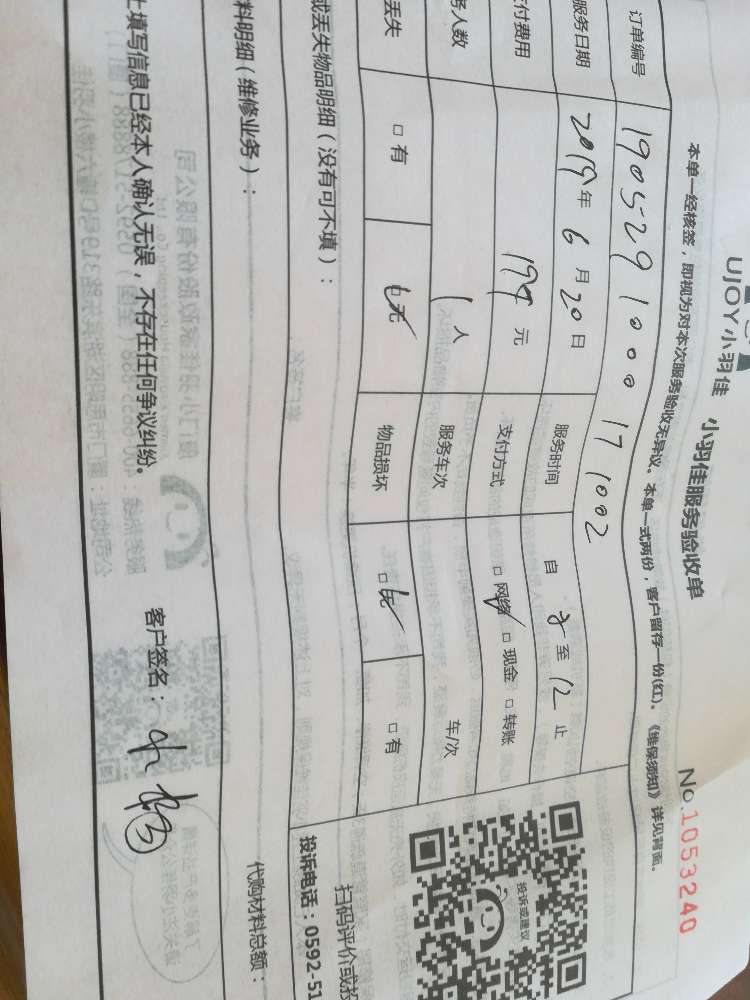 UJOY小羽佳 小羽佳服务验收单
No.1053240
本单一经核签，即视为对本次服务验收无异议。本单一式两份，客户留存一份(红)。《维保须知》详见背面。
订单编号 1905291000171002
服务日期 2019年6月20日 服务时间 自 至12止
付费用 199元 支付方式 □网络 □现金 □转账
务人数 1人 服务车次 车/次
丢失 □有 □无 物品损坏 □无 □有
或丢失物品明细（没有可不填）：
料明细（维修业务）：
代购材料总额：
填写信息已经本人确认无误，不存在任何争议纠纷。 客户签名：
投诉或建议
扫码评价或投
投诉电话：0592-51